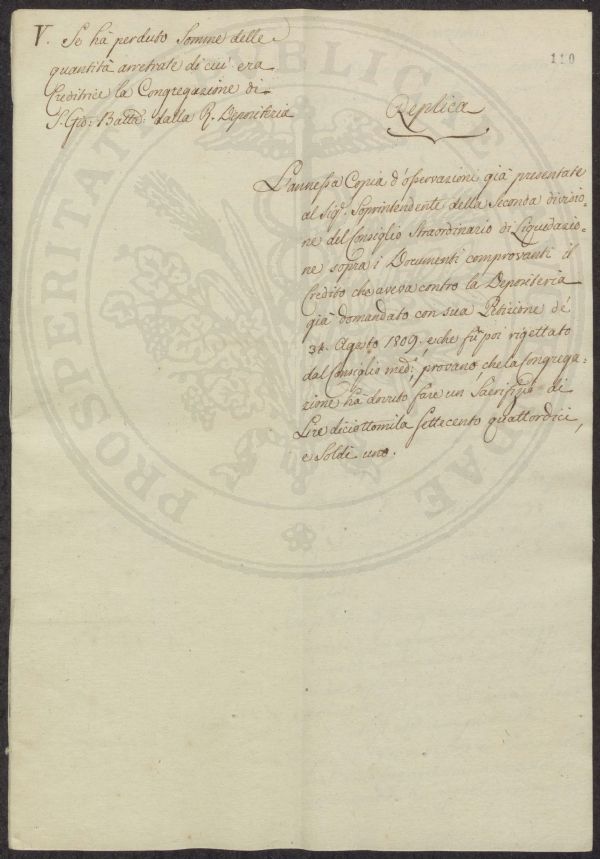 V. Se hà perduto Somme delle
quantità arretrate di cui era
Creditrice la Congregazione di
S. Gio: Batta: dalla R. Depositeria
110
Replica
L'annessa Copia d'osservazioni già presentate
al Sigr. Soprintendente della Seconda divisio-
ne del Consiglio Straordinario di Liquidazio-
ne sopra i Documenti comprovanti il
Credito che aveva contro la Depositeria
già domandato con sua Petizione de'
31. Agosto 1809, e che fù poi rigettato
dal Consiglio med:, provano, che la Congrega-
zione hà dovuto fare un Sacrifizio di
Lire diciottomila settecento quattordici,
e Soldi uno.
PROSPERITATI PUBLICAE